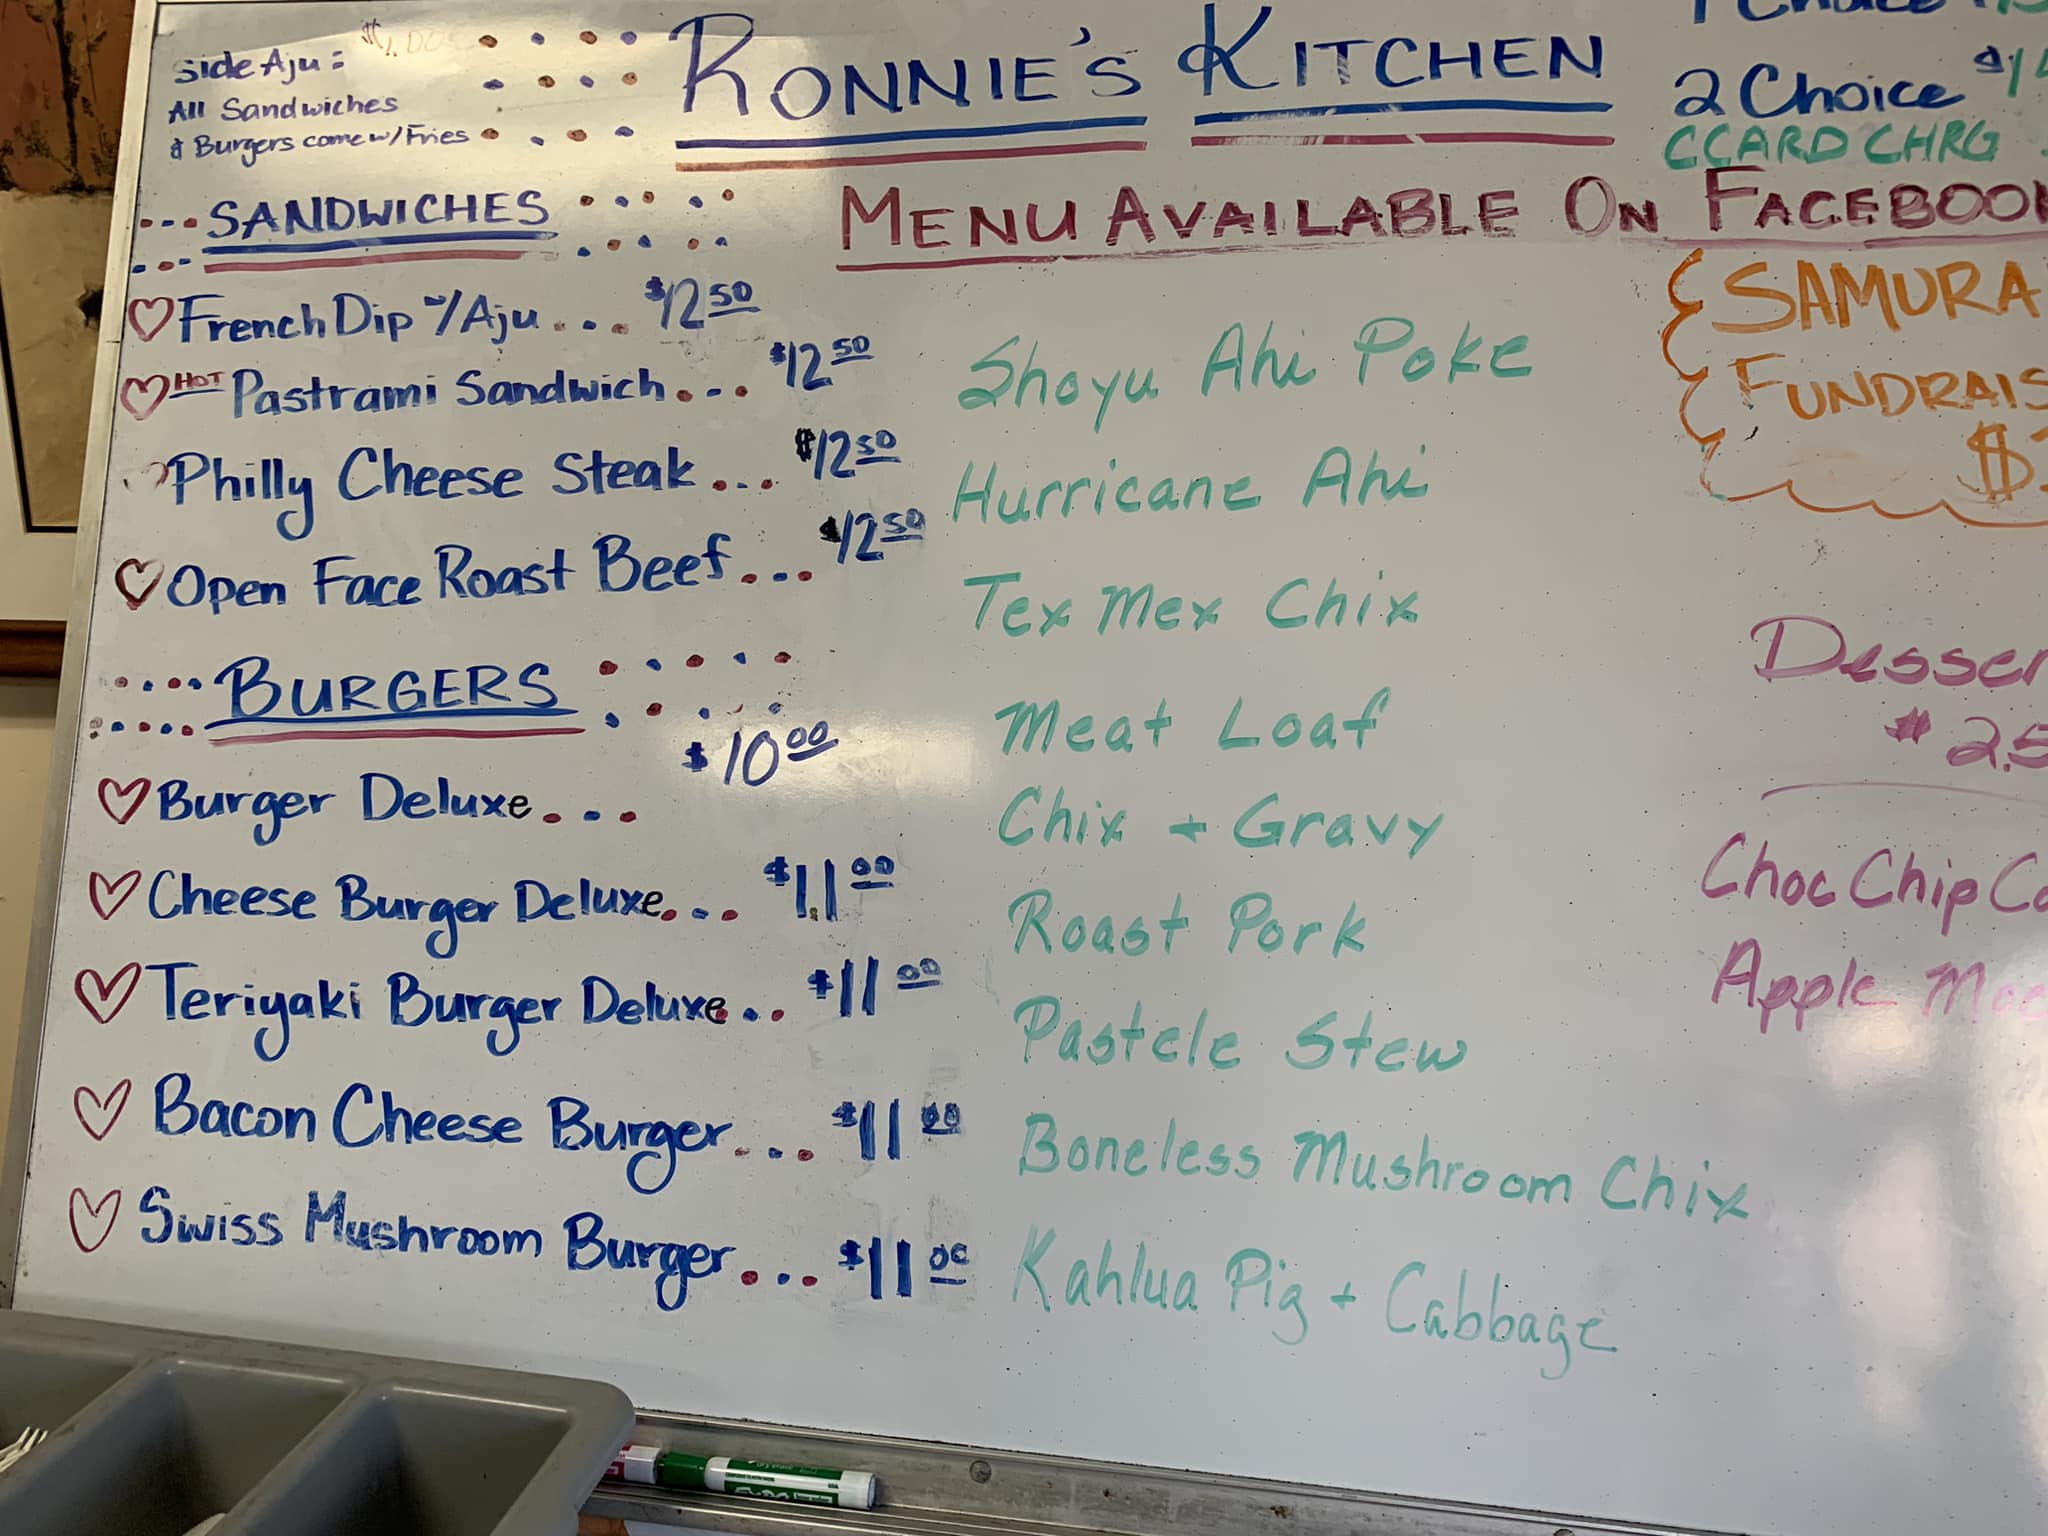 side Aju: $1.00
All Sandwiches
& Burgers come w/Fries
RONNIE'S KITCHEN
2 Choice
CCARD CHRG
MENU AVAILABLE ON FACEBOOK
SANDWICHES
French Dip w/Aju... $12 50
HOT Pastrami Sandwich... $12 50
Philly Cheese Steak... $12 50
Open Face Roast Beef... $12 50
BURGERS
Burger Deluxe... $10 00
Cheese Burger Deluxe... $11 00
Teriyaki Burger Deluxe... $11 00
Bacon Cheese Burger... $11 00
Swiss Mushroom Burger... $11 00
Shoyu Ahi Poke
Hurricane Ahi
Tex Mex Chix
Meat Loaf
Chix + Gravy
Roast Pork
Pastele Stew
Boneless Mushroom Chix
Kahlua Pig + Cabbage
SAMURA
FUNDRAIS
Desser
$2.5
Choc Chip Co
Apple
EXPO